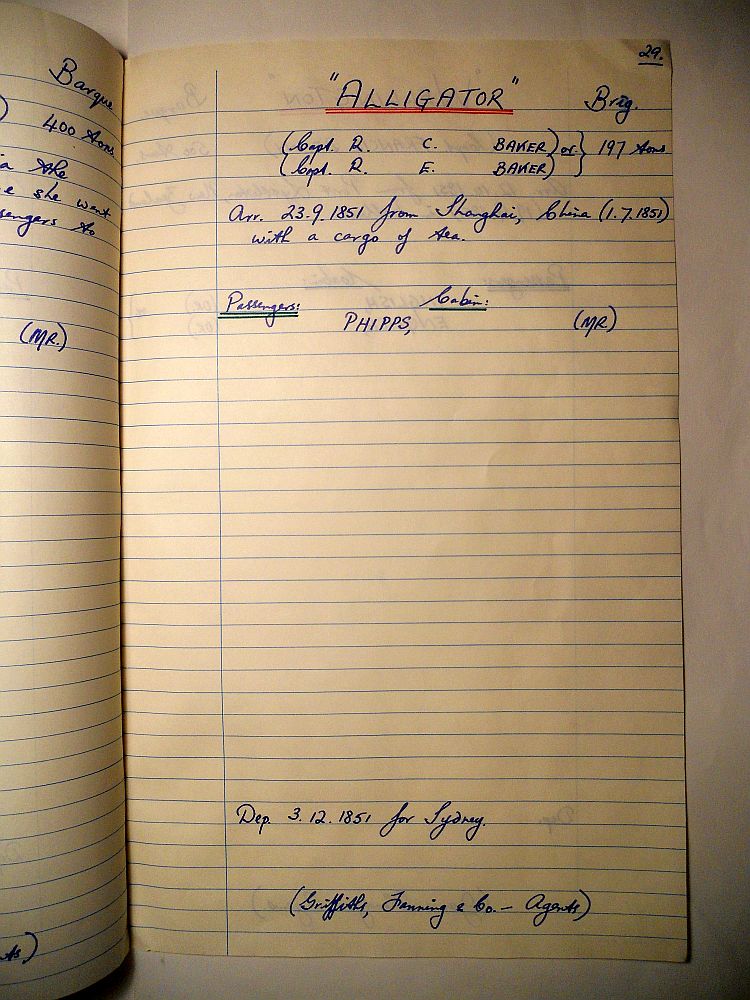 Barque
400 tons
the
e she went
sengers to
(MR.)
29.
"ALLIGATOR" Brig.
(Capt. R. C. BAKER) or } 197 tons
(Capt. R. E. BAKER)
Arr. 23.9.1851 from Shanghai, China (1.7.1851)
with a cargo of tea.
Passengers: Cabin:
PHIPPS, (MR)
Dep. 3.12.1851 for Sydney.
(Griffiths, Fanning & Co. - Agents)